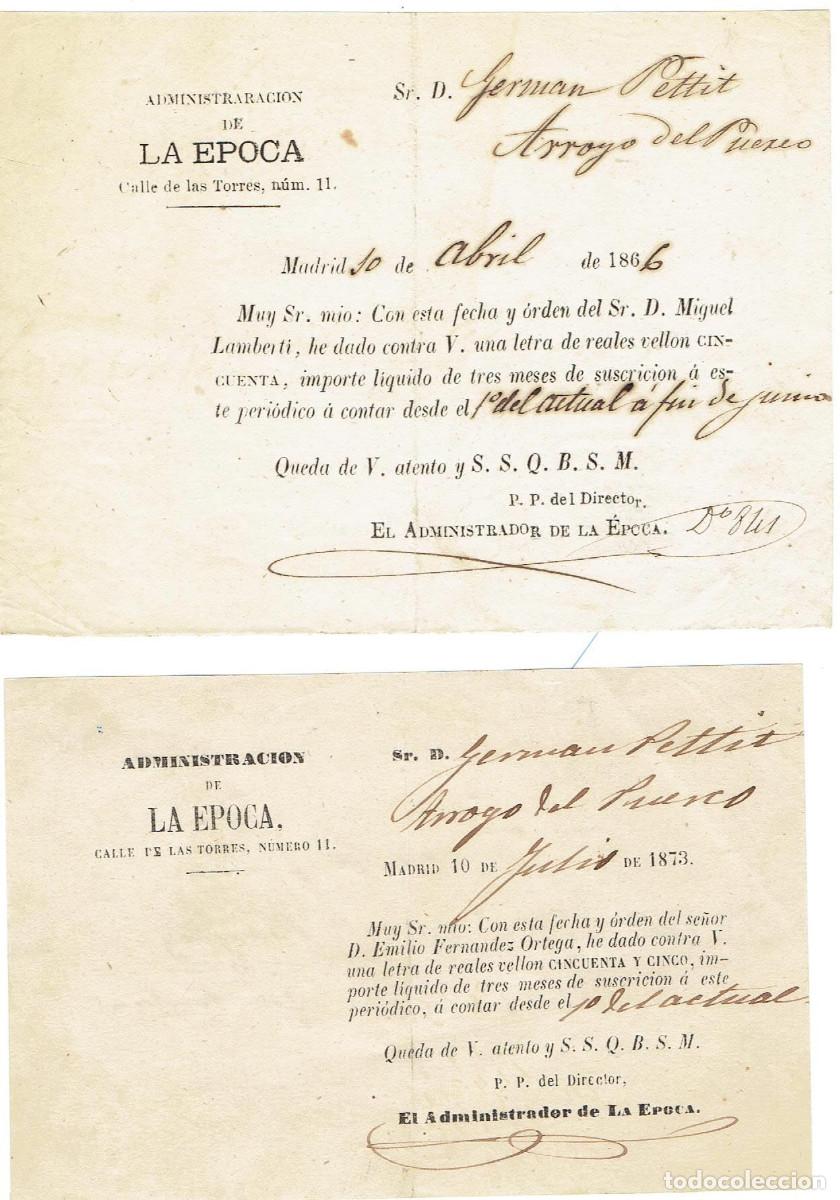 ADMINISTRARACION
DE
LA EPOCA
Calle de las Torres, núm. 11.
Sr. D. German Pettit
Arroyo del Puerco
Madrid 10 de abril de 1866
Muy Sr. mio: Con esta fecha y órden del Sr. D. Miguel
Lamberti, he dado contra V. una letra de reales vellon CIN-
CUENTA, importe líquido de tres meses de suscricion á es-
te periódico á contar desde el 1º del actual á fin de junio
Queda de V. atento y S. S. Q. B. S. M.
P. P. del Director,
EL ADMINISTRADOR DE LA ÉPOCA.
ADMINISTRACION
DE
LA EPOCA.
CALLE DE LAS TORRES, NÚMERO 11.
Sr. D. German Pettit
Arroyo del Puerco
MADRID 10 DE Julio DE 1873.
Muy Sr. mio: Con esta fecha y órden del señor
D. Emilio Fernandez Ortega, he dado contra V.
una letra de reales vellon CINCUENTA Y CINCO, im-
porte líquido de tres meses de suscricion á este
periódico, á contar desde el 1º del actual.
Queda de V. atento y S. S. Q. B. S. M.
P. P. del Director,
El Administrador de LA EPOCA.
todocoleccion